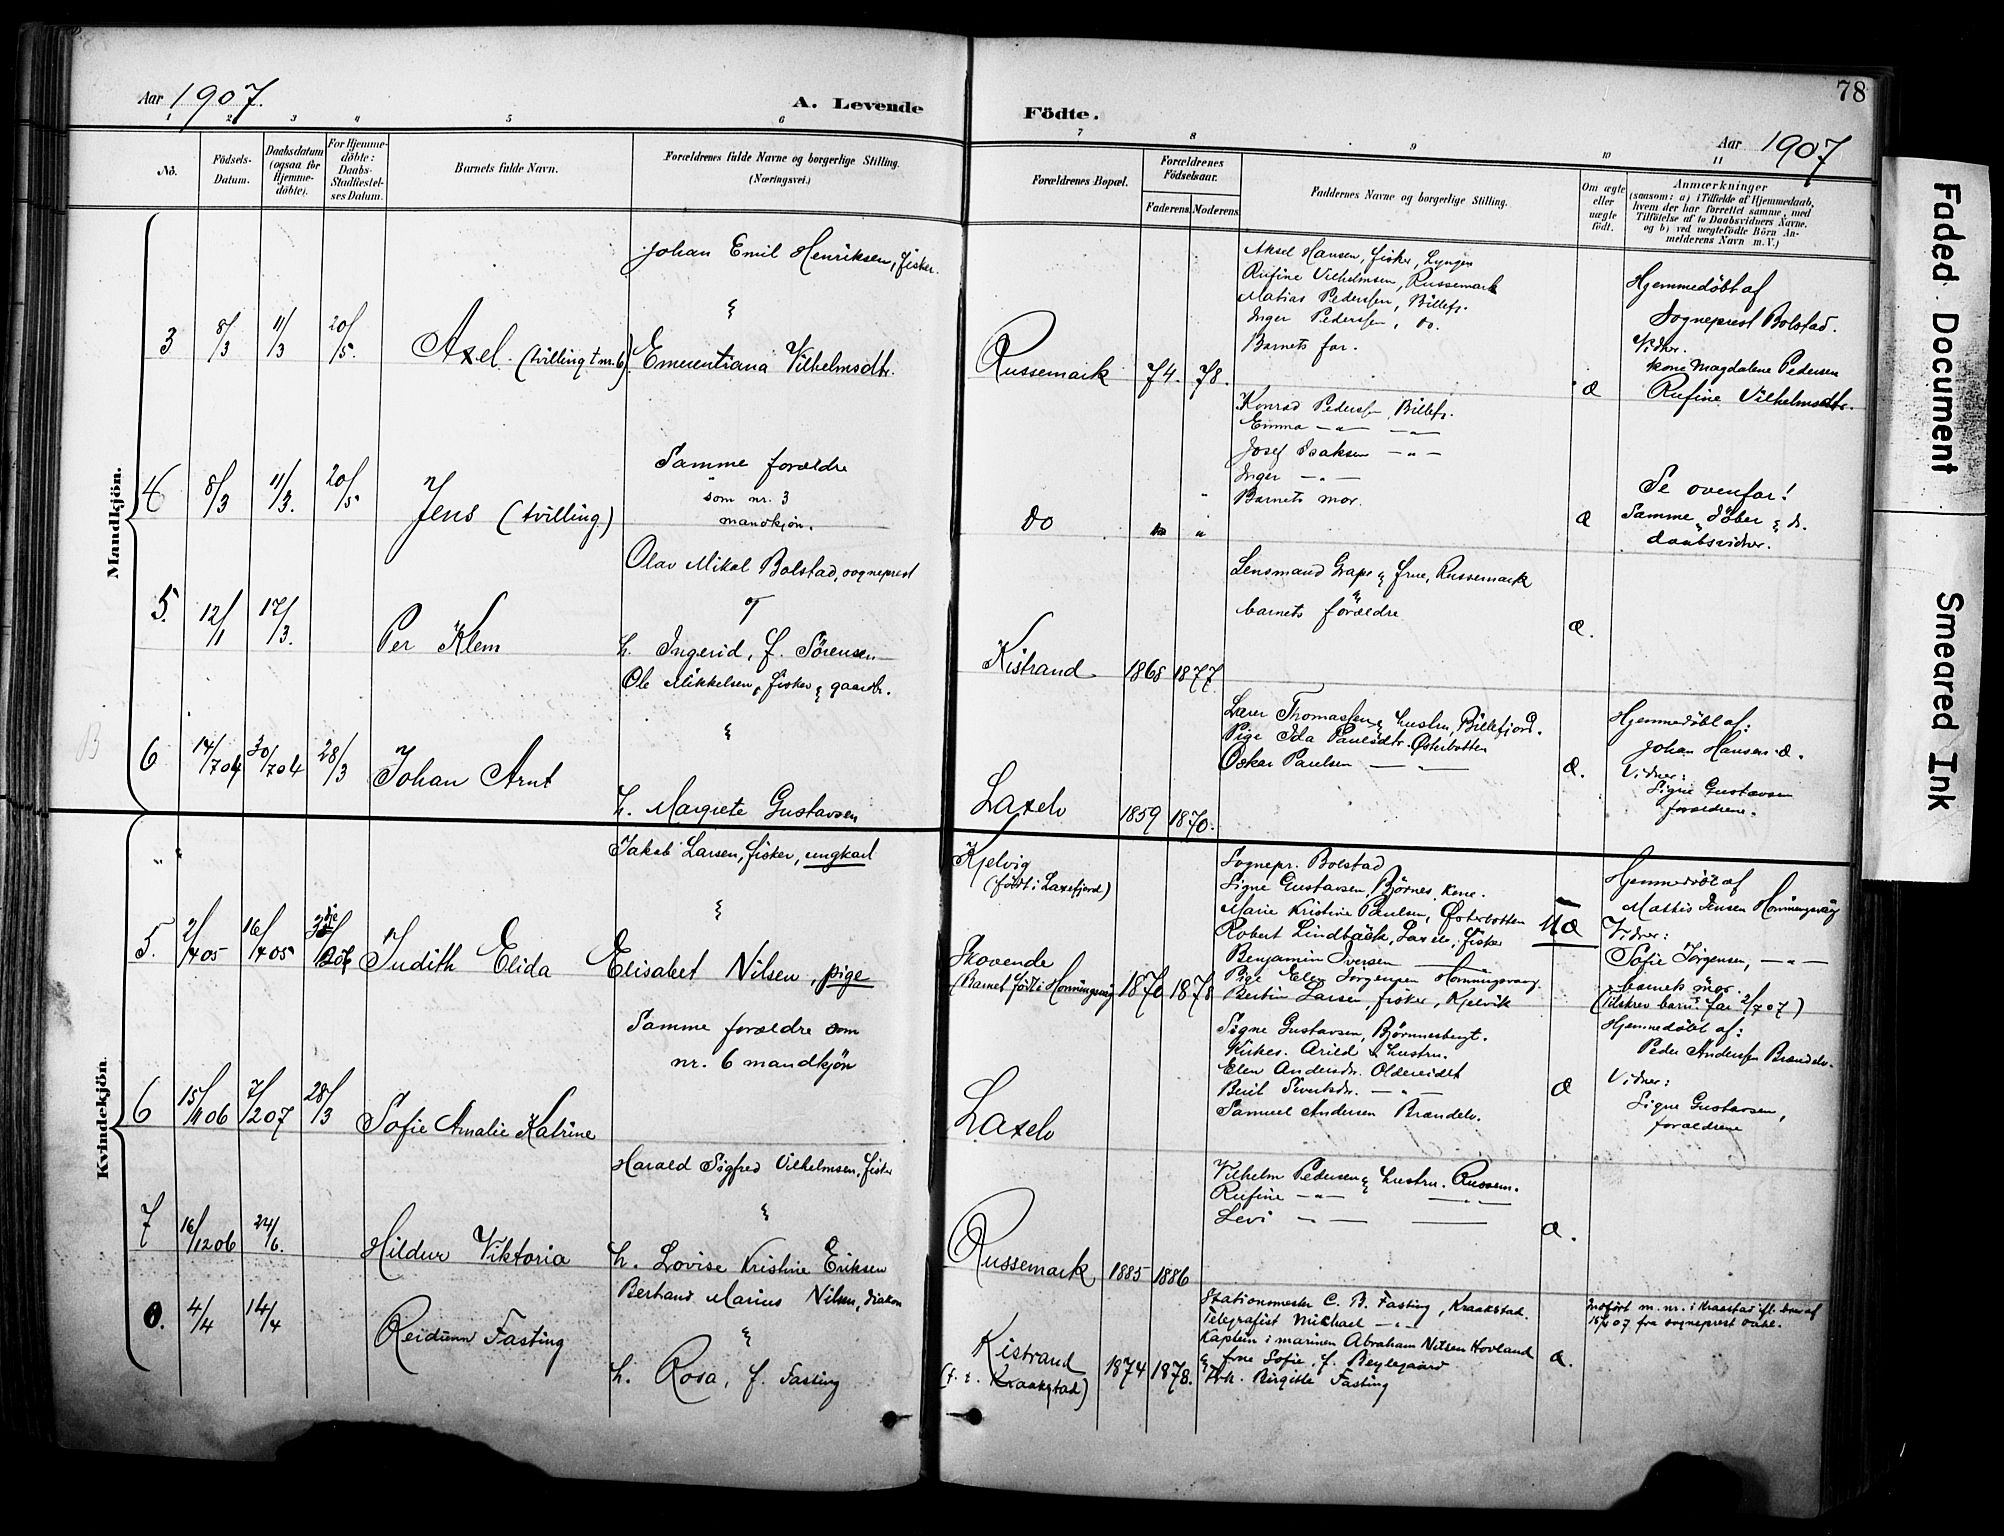 78
Aar 1907. A. Levende Födte. Aar 1907
1 2 3 4 5 6 7 8 9 10 11
No.
Födsels-
Datum.
Daabsdatum
(ogsaa for
Hjemme-
döbte).
For Hjemme-
döbte:
Daabs-
Stadfæstel-
ses Datum.
Barnets fulde Navn.
Forældrenes fulde Navne og borgerlige Stilling.
(Næringsvei.)
Forældrenes Bopæl.
Forældrenes
Födselsaar.
Faderens. Moderens.
Faddernes Navne og borgerlige Stilling.
Om ægte
eller
uægte
födt.
Anmærkninger
(saasom: a) i Tilfælde af Hjemmedaab,
hvem der har forrettet samme, med
Tilföielse af to Daabsvidners Navne,
og b) ved uægtefödte Börn An-
melderens Navn m. V.)
Mandkjön.
3 8/3 11/3 20/5. Axel. (tvilling t nr. 6)
Johan Emil Henriksen, fisker.
&
Emerentiana Vilhelmsdtr.
Russemark 74. 78.
Aksel Hansen, fisker, Lyngen
Rufine Vilhelmsen, Russemark
Matias Pederssen, Billefj.
Inger Pederssen, do.
Barnets far.
Æ
Hjemmedøbt af
Sogneprest Bolstad.
Vidner.
kone Magdalene Pedersen
Rufine Vilhelmsdtr.
4 8/3 11/3. 20/5 Jens (tvilling)
Samme forældre
som nr. 3
mandkjøn.
do " "
Konrad Pederssen Billefj.
Emma — " — — " —
Josef Isaksen — " —
Inger — " —
Barnets mor.
Æ
Se ovenfor!
Samme døber & d.
daabsvidner.
5. 12/1 17/3. Per Klem
Olav Mikal Bolstad, sogneprest
og
h. Ingerid, f. Sörensen
Kistrand 1868 1877
Lensmand Grape & frue, Russemark
&
barnets forældre
Æ.
6 14/704 30/704 28/3 Johan Arnt
Ole Mikkelsen, fisker & gaardbr.
&
h. Margrete Gustavsen
Laxelv 1859 1870.
Lærer Thomassen & hustru, Billefjord.
Pige Ida Paulsdtr. Østerbotten
Oskar Paulsen — " —
Æ.
Hjemmedøbt af:
Johan Hansen
Vidner:
Signe Gustavsen
forældrene.
Kvindekjön.
5. 2/705 16/705 Judith Elida
Jakob Larsen, fisker, ungkarl
&
Elisabet Nilsen, pige
Kjelvig
(født i Laxefjord)
Skovende
(Barnet født i Honningsvaag) 1870 1878
Sognepr. Bolstad
Signe Gustavsen, Björnes, kone.
Marie Kristine Paulsen, Østerbotten
Robert Lindbäck, Laxelv, fisker
Benjamin Iversen
Pige Elen Jörgensen Honningsvaag.
Bertin Larsen fisker, Kjelvik
UÆ
Hjemmedøbt af
Mattis Jensen Honningsvåg
Vidner:
Sofie Jörgensen, — " —
barnets mor.
(Utskrev barns. far 2/707)
6 15/1106 7/207 28/3 Sofie Amalie Katrine
Samme forældre som
nr. 6 mandkjön
Laxelv
Signe Gustavsen, Björnnesbergt.
Kirkes. Arild & hustru.
Elen Andersdr. Oldereidet
Berit Sivertsdr. — " —
Samuel Andersen Brændelv.
Æ
Hjemmedöbt af:
Peder Anderssen Brændelv.
Vidner:
Signe Gustavsen,
forældrene
7 16/1206 24/6. Hildur Viktoria
Harald Sigfred Vilhelmsen, fisker
&
h. Lovise Kristine Eriksen
Russemark 1885 1886
Vilhelm Pedersen & hustru. Russem.
Rufine — " — — " —
Levi — " —
Æ.
4/4 14/4 Reidunn Fasting
Bertand Marius Nilsen, diakon
&
h. Rosa, f. Fasting
Kistrand
(f. i. Kraakstad) 1874 1878.
Stationsmester C. B. Fasting, Kraakstad.
Telegrafist Michael — " —
Kaptein i marinen Abraham Nilsen Hovland
& frue Sofie, f. Beylegaard
Frk. Birgitte Fasting
Æ.
Indført m. nr. i Kraakstad ifl. brev af
fra sogneprest
Faded Document
Smeared Ink